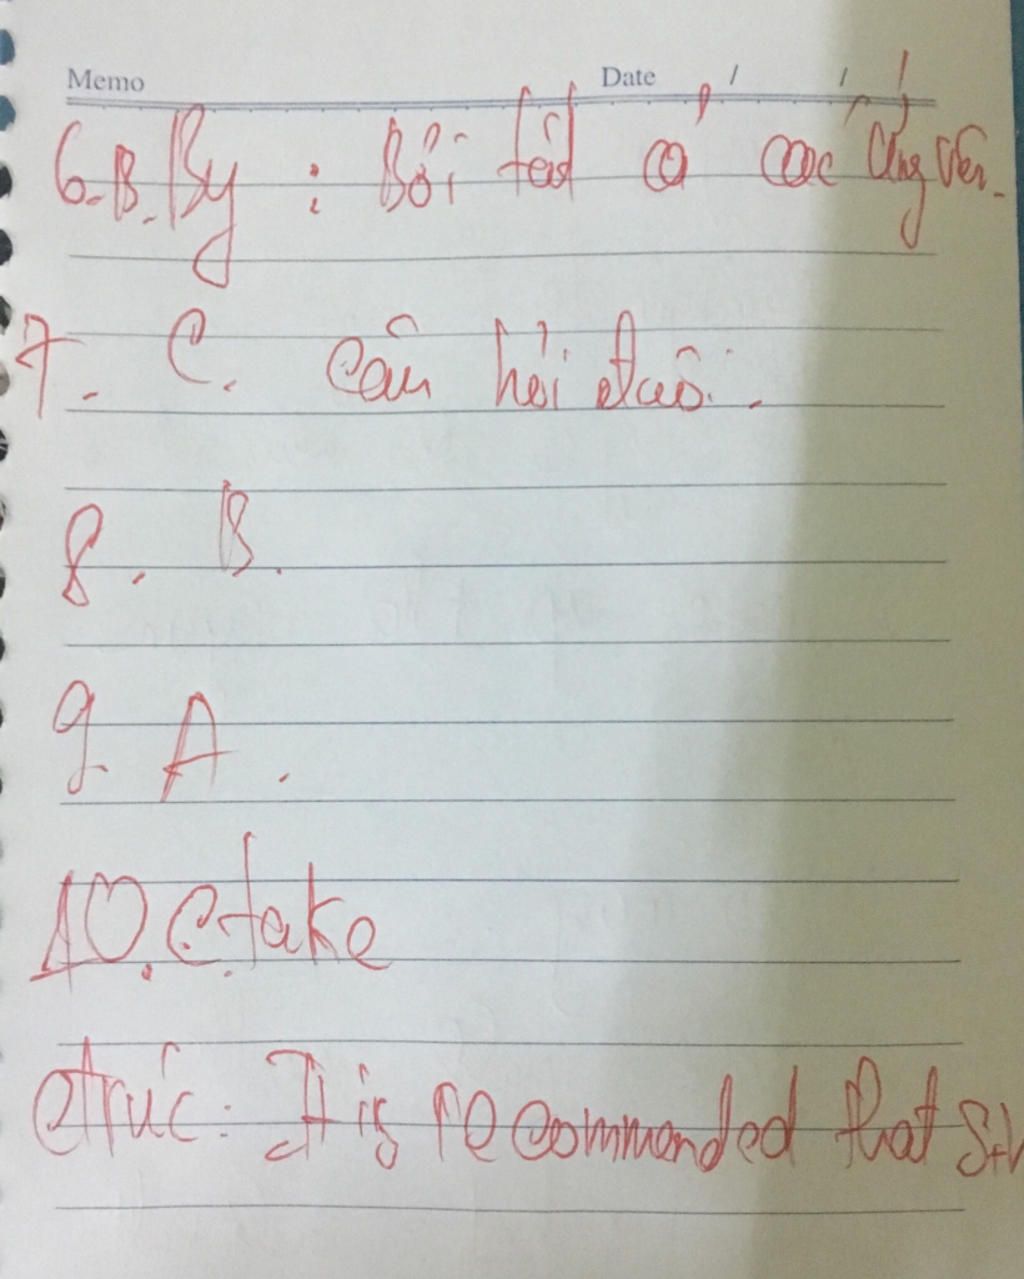 Memo Date / /
6.B. By : Bởi tất cả các ứng viên.
7. C. câu hỏi đuôi.
8. B.
9. A.
10. C. take
ctrúc: It is recommended that S+V